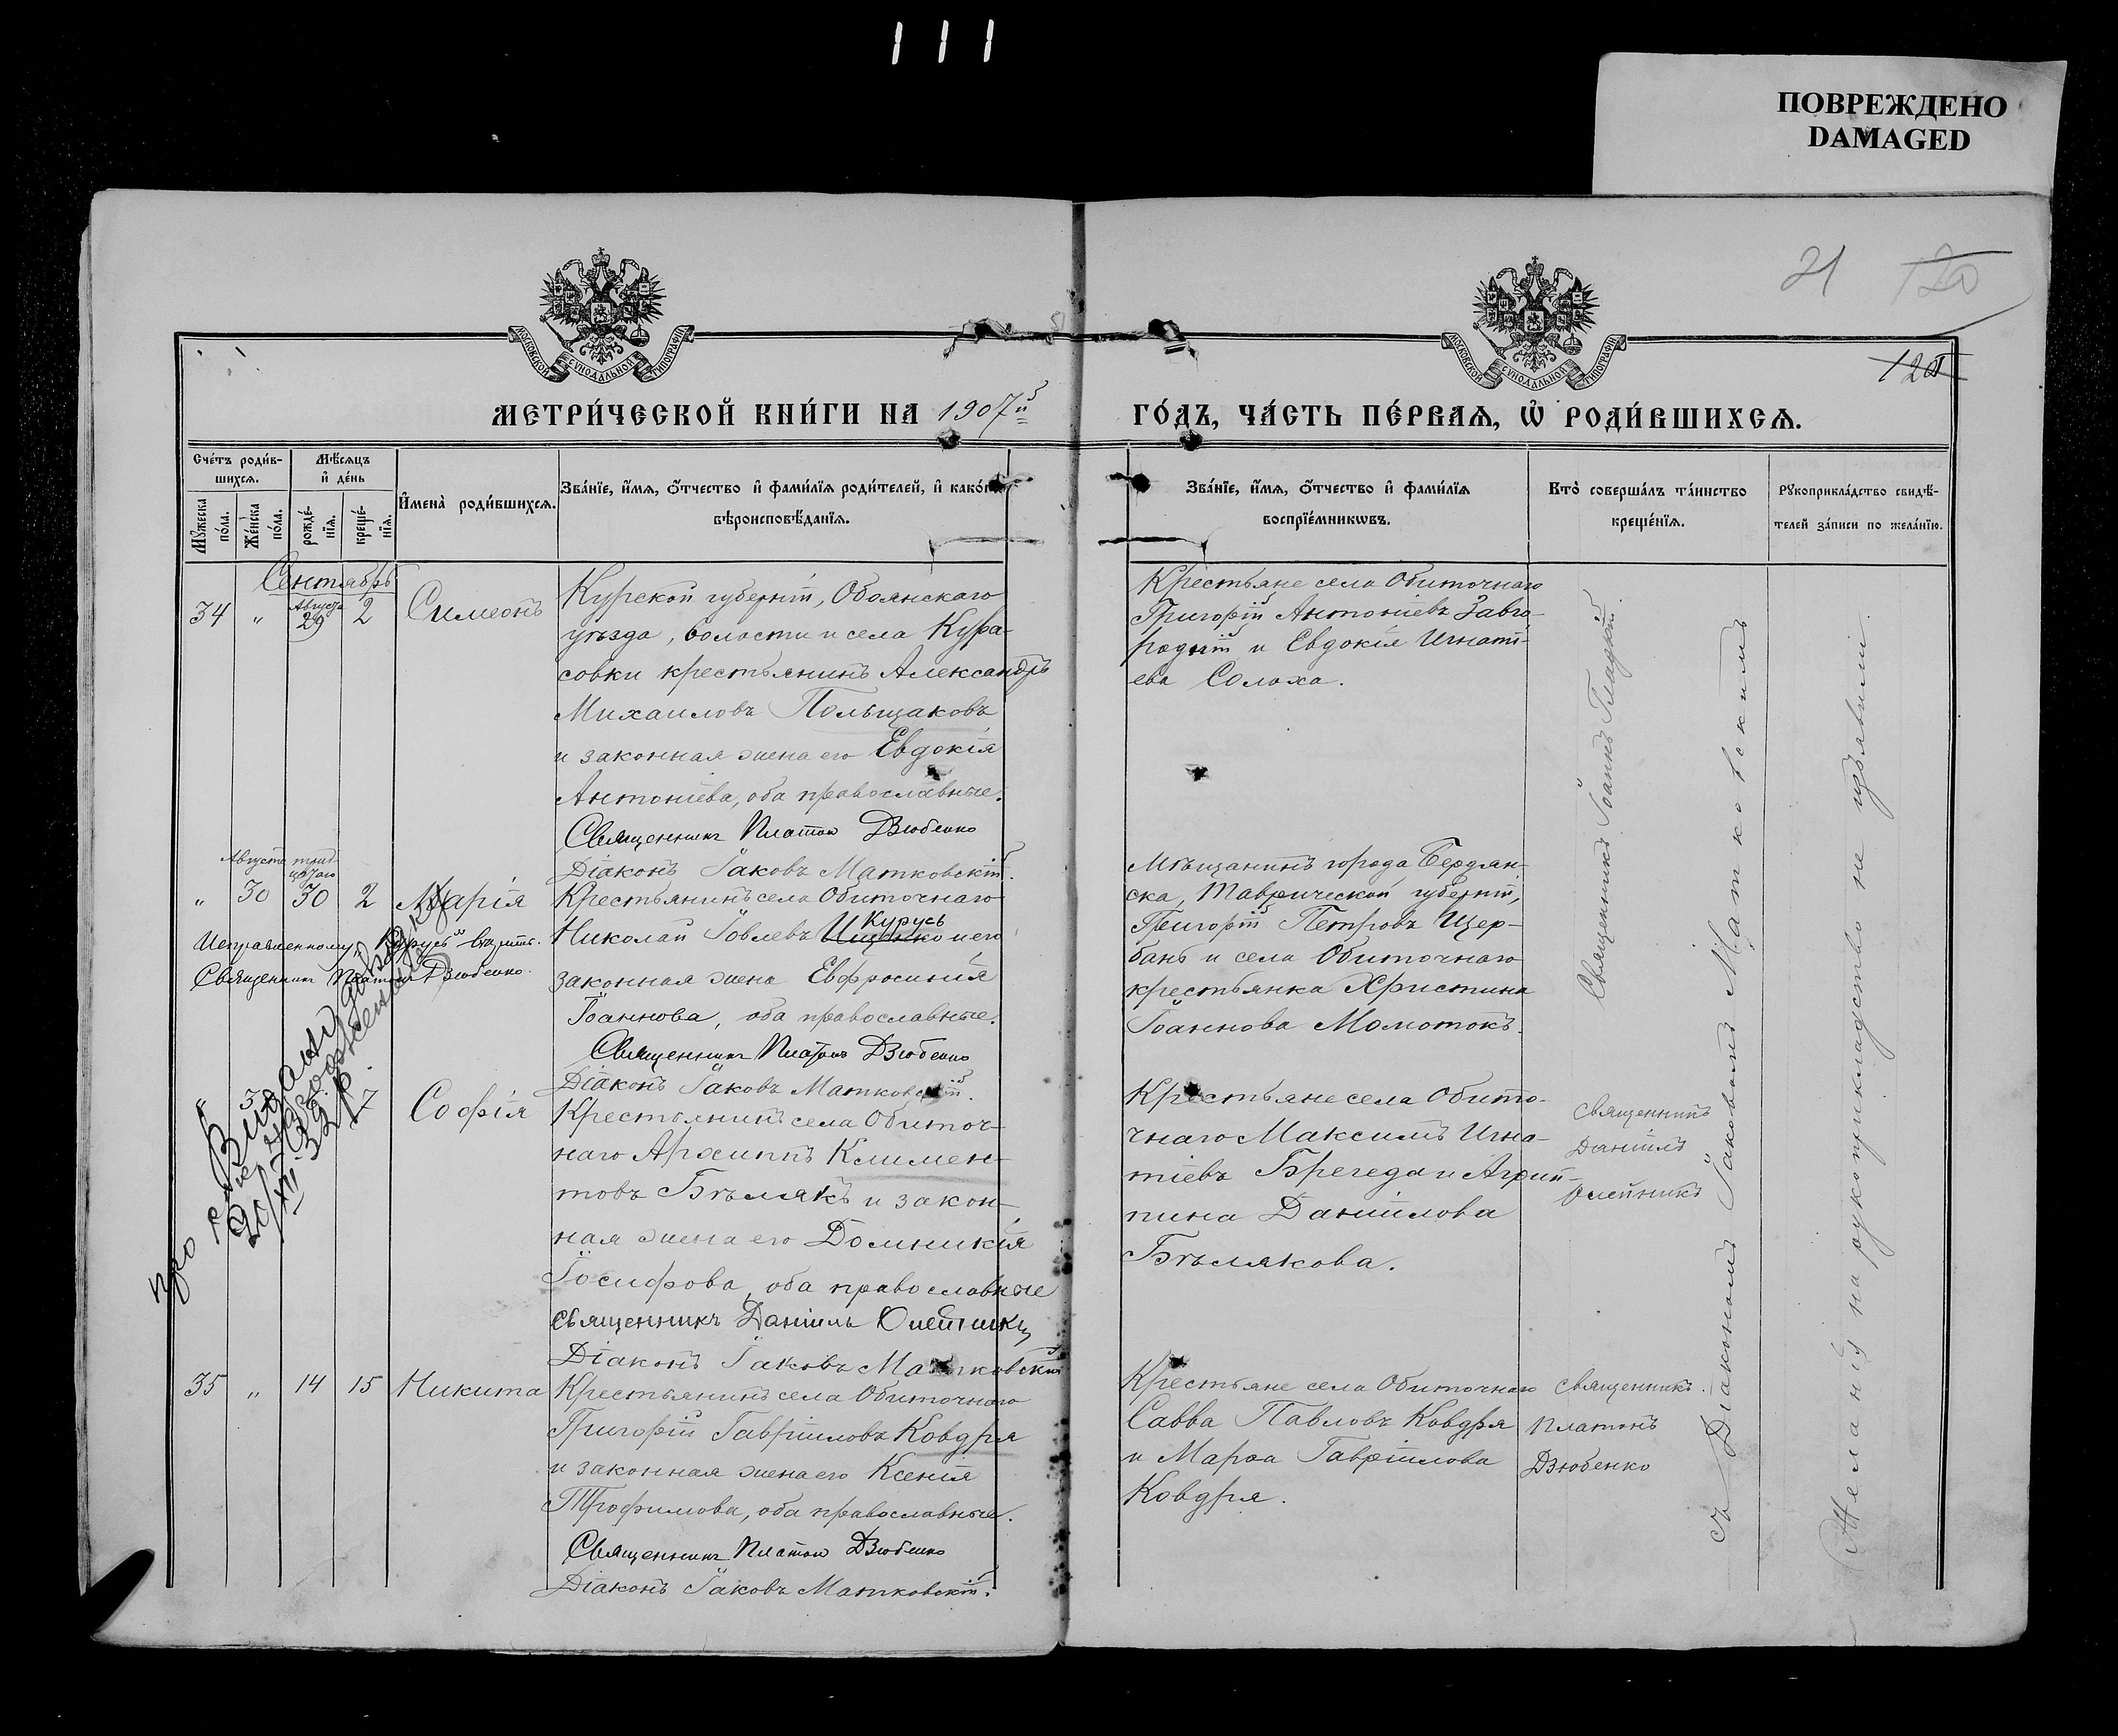 111
ПОВРЕЖДЕНО
DAMAGED
21
120
120
МОСКОВСКОЙ СѴНОДАЛЬНОЙ ТИПОГРАФІИ
МОСКОВСКОЙ СѴНОДАЛЬНОЙ ТИПОГРАФІИ
МЕТРИ́ЧЕСКОЙ КНИ́ГИ НА 1907й
ГО́ДЪ, ЧА́СТЬ ПЕ́РВАѦ, Ѡ҆ РОДИ́ВШИХСѦ.
Сче́тъ роди́в-
шихсѧ.
Мѣ́сѧцъ
и҆ де́нь
Мꙋ́жеска по́ла.
Же́нска по́ла.
рожде́-нїѧ.
креще́-нїѧ.
И҆мена̀ роди́вшихсѧ.
Зва́нїе, и҆́мѧ, ѻ҆́тчество и҆ фами́лїѧ роди́телей, и҆ како́гѡ
вѣроисповѣ́данїѧ.
Зва́нїе, и҆́мѧ, ѻ҆́тчество и҆ фами́лїѧ
воспрїе́мникѡвъ.
Кто̀ соверша́лъ та́инство
креще́нїѧ.
Рꙋкоприкла́дство свидѣ́-
телей за́писи по жела́нїю.
Сентябрь
34 " Августа 29 2 Симеонъ
Курской губерніи, Обоянскаго
уѣзда, волости и села Кура-
совки крестьянинъ Александръ
Михаиловъ Польщаковъ
и законная жена его Евдокія
Антоніева, оба православные.
Священникъ Платон Дзюбенко
Діаконъ Іаковъ Матковскій.
Крестьяне села Обиточнаго
Григорій Антоніевъ Завго-
родній и Евдокія Игнаті-
ева Солоха.
Священникъ Іоаннъ Гладкій
Августа трид-
цатаго
" 30 30 2 Марія
Исправленному „Курусь" вѣрить.
Священник Платон Дзюбенко.
Крестьянинъ села Обиточнаго
Николай Іовлевъ Ищенко Курусь и его
законная жена Евфросинія
Іоаннова, оба православные.
Священникъ Платонъ Дзюбенко
Діаконъ Іаковъ Матковскій.
Мѣщанинъ города Бердян-
ска, Таврической губерніи,
Григорій Петровъ Щер-
бань и села Обиточнаго
крестьянка Христина
Іоаннова Момотокъ.
7 Софія
Крестьянинъ села Обиточ-
наго Архиппъ Климен-
товъ Бѣлякъ и закон-
ная жена его Домникія
Іосифова, оба православные
священникъ Даніилъ Олейникъ
Діаконъ Іаковъ Матковскій
Крестьяне села Обито-
чнаго Максимъ Игна-
тіевъ Брегеда и Агрип-
пина Даніилова
Бѣлякова.
священникъ
Даніилъ
Олейникъ
35 " 14 15 Никита
Крестьянинъ села Обиточнаго
Григорій Гавріиловъ Ковдря
и законная жена его Ксенія
Трофимова, оба православные.
Священникъ Платон Дзюбенко
Діаконъ Іаковъ Матковскій.
Крестьяне села Обиточнаго
Савва Павловъ Ковдря
и Марѳа Гавріилова
Ковдря.
священникъ
Платонъ
Дзюбенко
съ Діакономъ Іаковомъ Матковскимъ
Желаній на рукоприкладство не изъявили.